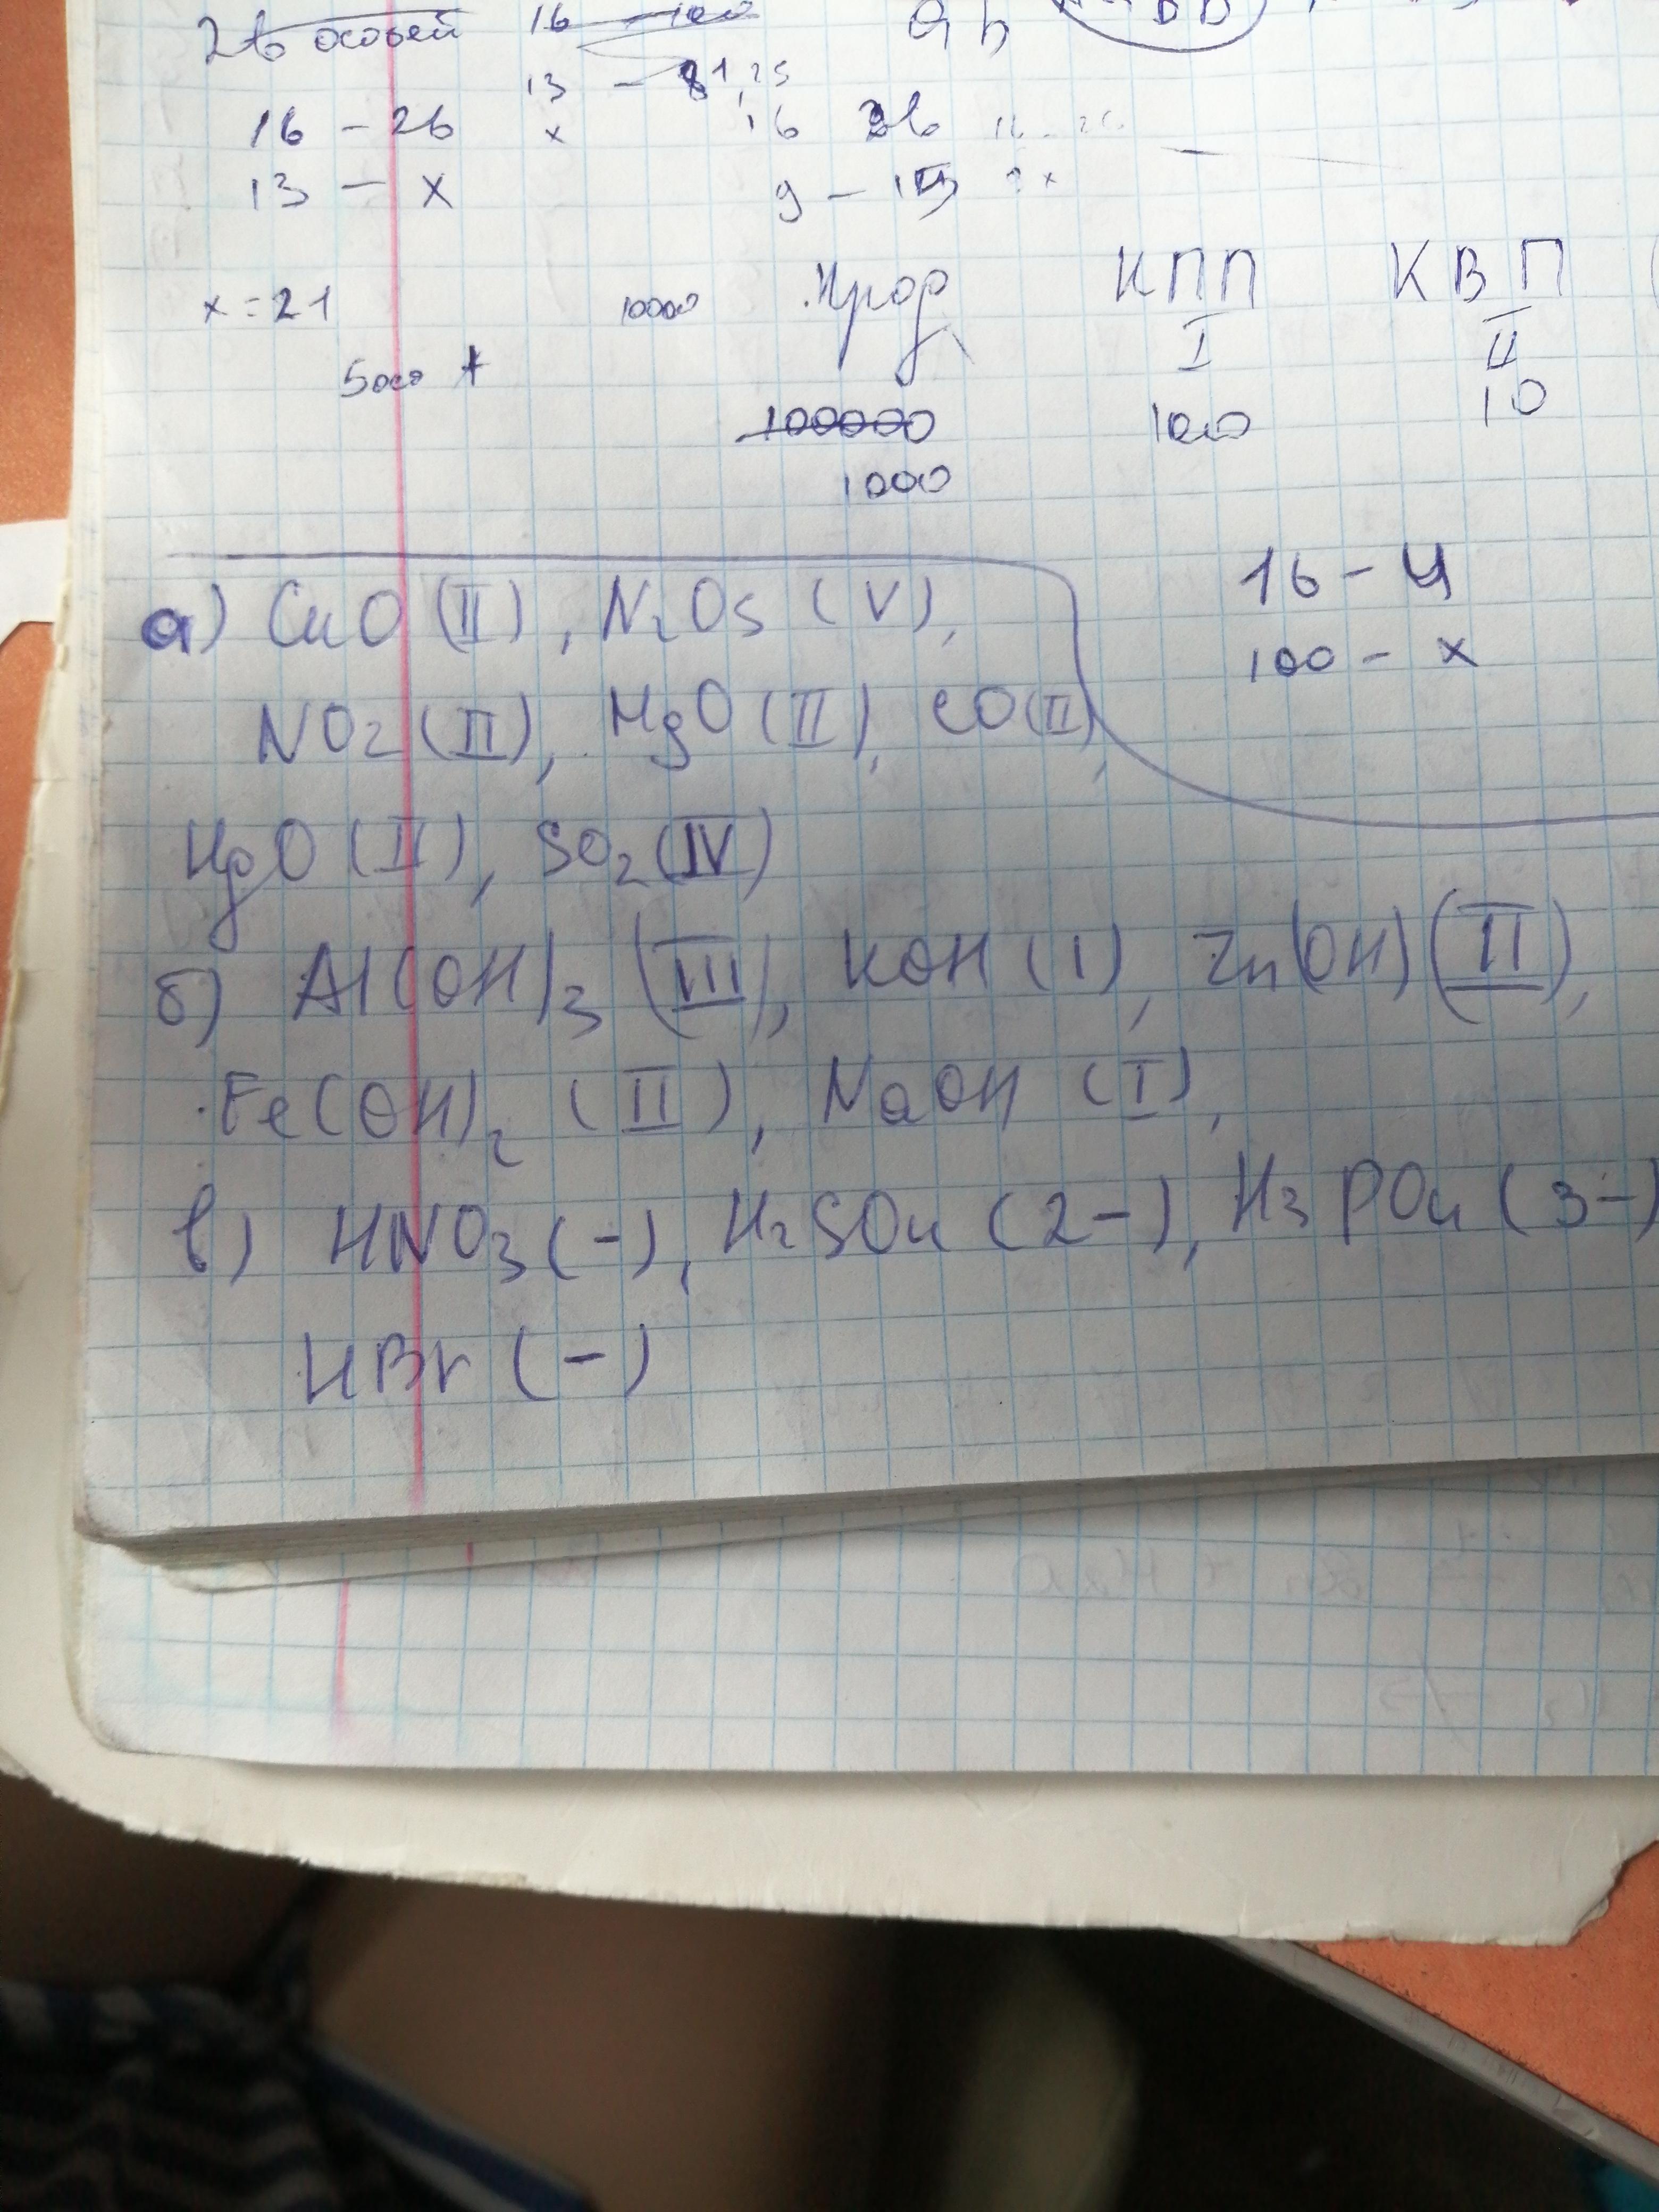 26 особей 16 – 100
13 – 81,25
16 – 26 x 16 26 16 - 26
13 – x 9 – 15 ? x
x = 21 10000 Прод КПП КВП
I II
5000
100000 100 10
1000
16 – 4
а) CuO (II), N2O5 (V), 100 – x
NO2 (II), MgO (II), CO (II),
HgO (II), SO2 (IV)
б) Al(OH)3 (III), KOH (I), Zn(OH) (II),
Fe(OH)2 (II), NaOH (I),
в) HNO3 (-), H2SO4 (2-), H3PO4 (3-)
HBr (-)